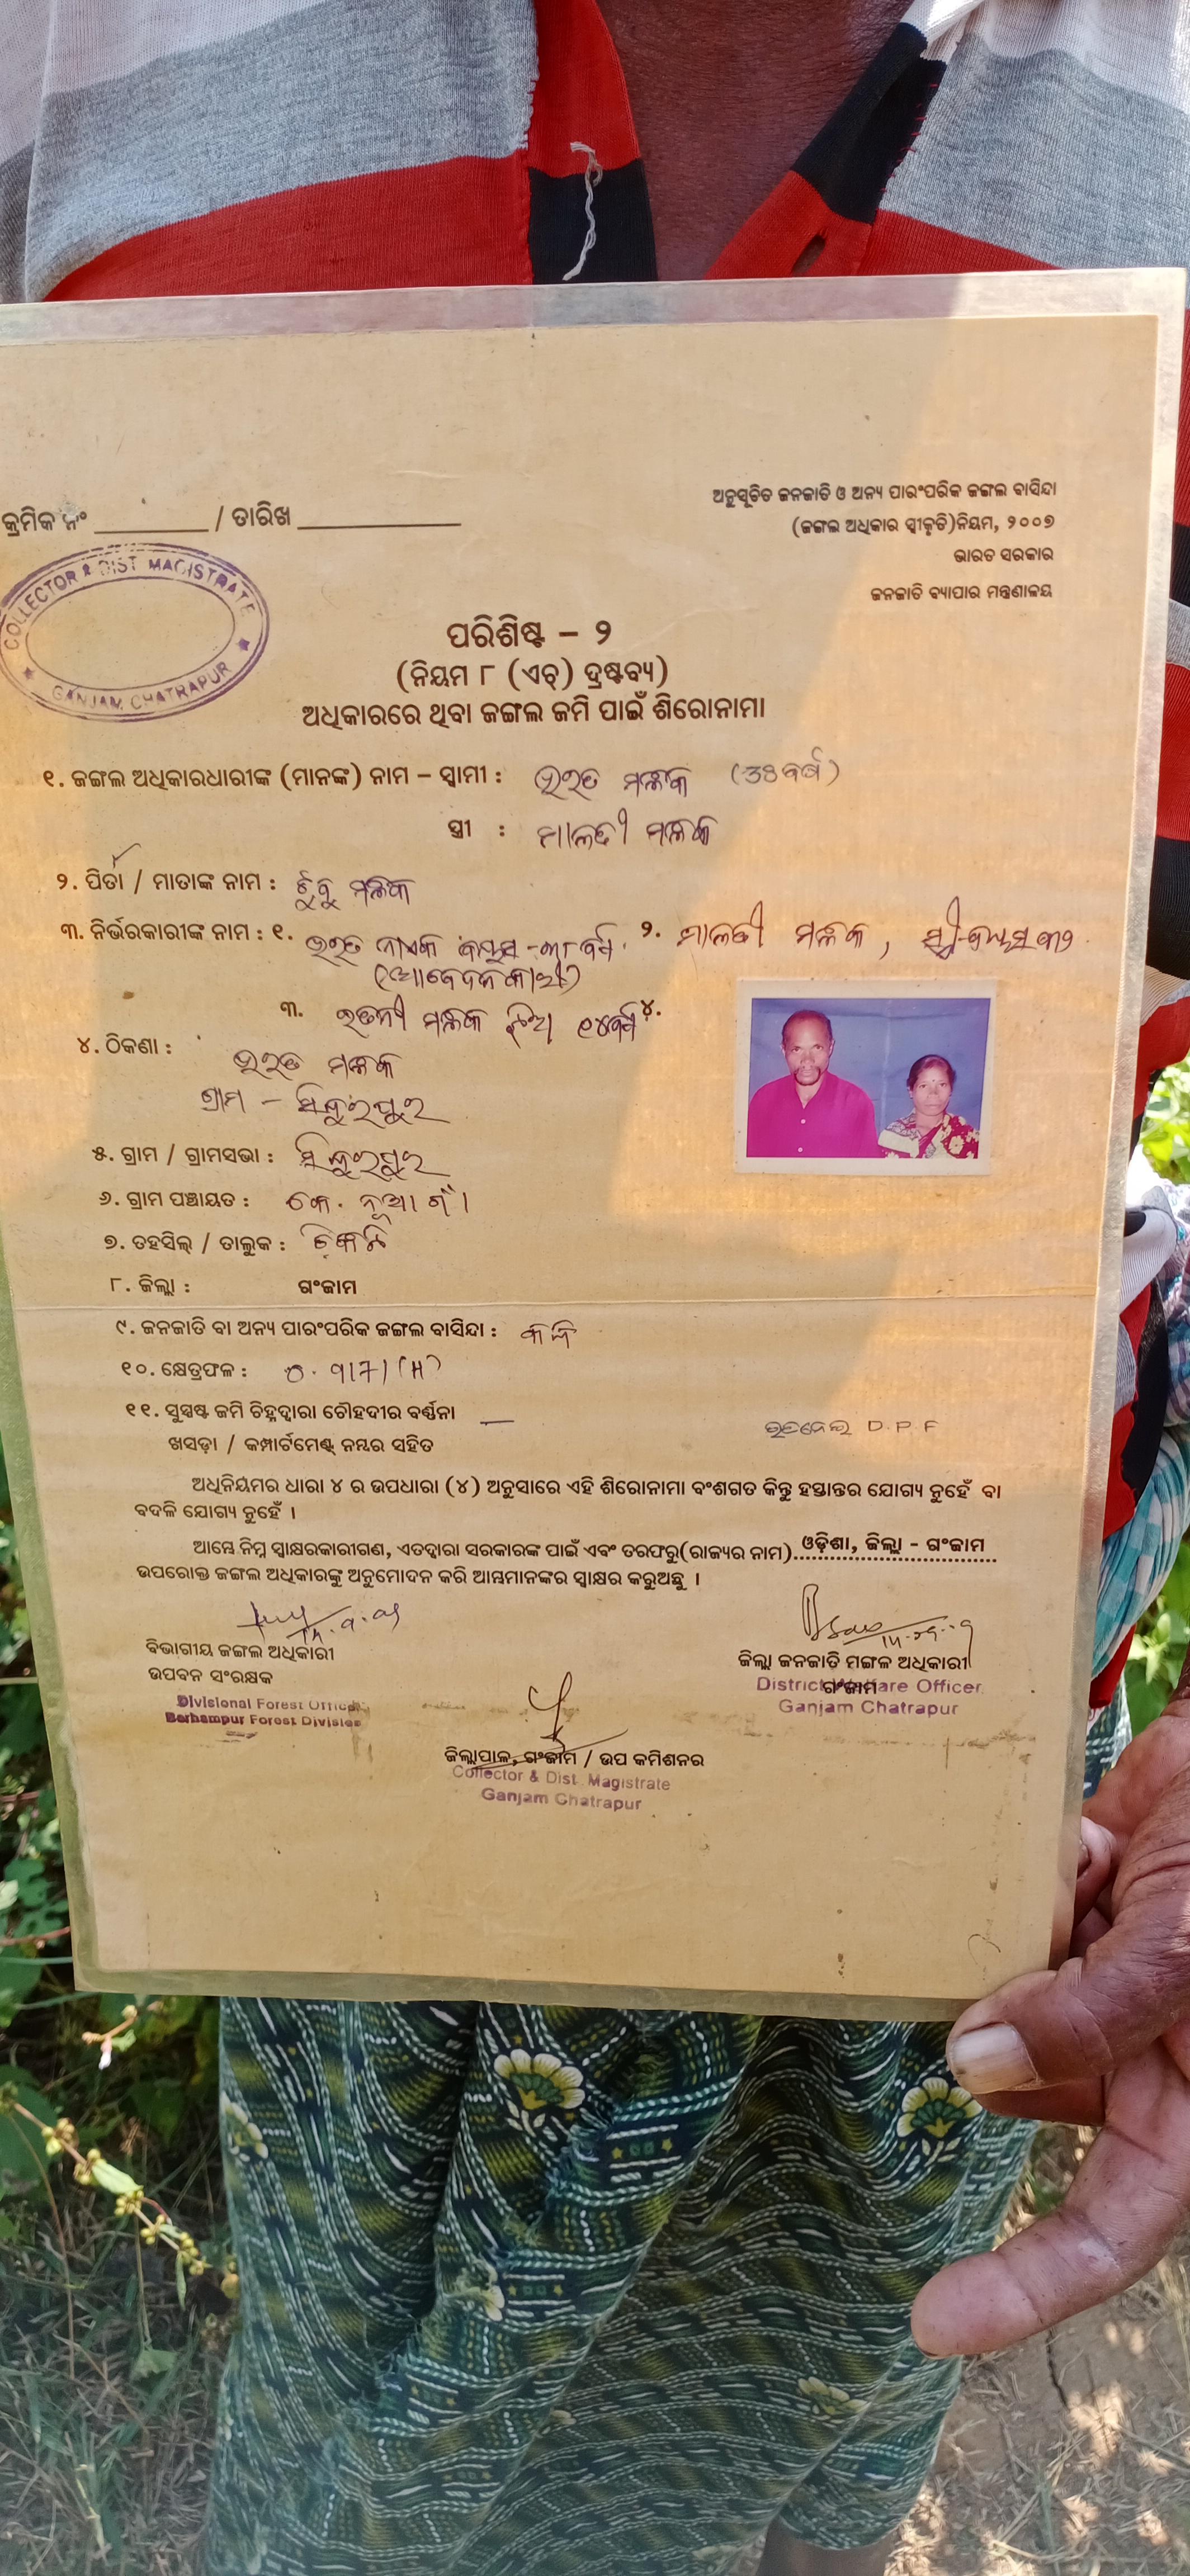 ଅନୁସୂଚିତ ଜନଜାତି ଓ ଅନ୍ୟ ପାରଂପରିକ ଜଙ୍ଗଲ ବାସିନ୍ଦା
(ଜଙ୍ଗଲ ଅଧିକାର ସ୍ୱୀକୃତି)ନିୟମ, ୨୦୦୭
ଭାରତ ସରକାର
ଜନଜାତି ବ୍ୟାପାର ମନ୍ତ୍ରଣାଳୟ
କ୍ରମିକ ନଂ / ତାରିଖ
COLLECTOR & DIST MAGISTRATE
GANJAM CHATRAPUR
ପରିଶିଷ୍ଟ – ୨
(ନିୟମ ୮ (ଏଚ୍) ଦ୍ରଷ୍ଟବ୍ୟ)
ଅଧିକାରରେ ଥିବା ଜଙ୍ଗଲ ଜମି ପାଇଁ ଶିରୋନାମା
୧. ଜଙ୍ଗଲ ଅଧିକାରଧାରୀଙ୍କ (ମାନଙ୍କ) ନାମ – ସ୍ୱାମୀ : ଭରତ ମଲ୍ଲିକ
ସ୍ତ୍ରୀ : ମାଲତୀ ମଲ୍ଲିକ
୨. ପିତା / ମାତାଙ୍କ ନାମ : ମଲ୍ଲିକ
୩. ନିର୍ଭରକାରୀଙ୍କ ନାମ : ୧. ଭରତ ନାଏକ ବୟସ - ୩୮ ବର୍ଷ ୨. ମାଲତୀ ମଲ୍ଲିକ, ସ୍ତ୍ରୀ-ବୟସ
(ଆବେଦନକାରୀ)
୩. ମଲ୍ଲିକ ଝିଅ ୪.
୪. ଠିକଣା : ଭରତ ମଲ୍ଲିକ
ଗ୍ରାମ –
୫. ଗ୍ରାମ / ଗ୍ରାମସଭା :
୬. ଗ୍ରାମ ପଞ୍ଚାୟତ : କେ. ନୂଆଗାଁ
୭. ତହସିଲ୍ / ତାଲୁକ : ଚିକିଟି
୮. ଜିଲ୍ଲା : ଗଂଜାମ
୯. ଜନଜାତି ବା ଅନ୍ୟ ପାରଂପରିକ ଜଙ୍ଗଲ ବାସିନ୍ଦା :
୧୦. କ୍ଷେତ୍ରଫଳ :
୧୧. ସୁସ୍ପଷ୍ଟ ଜମି ଚିହ୍ନଦ୍ୱାରା ଚୌହଦୀର ବର୍ଣ୍ଣନା —
ଖସଡ଼ା / କମ୍ପାର୍ଟମେଣ୍ଟ୍ ନମ୍ବର ସହିତ D.P.F
ଅଧିନିୟମର ଧାରା ୪ ର ଉପଧାରା (୪) ଅନୁସାରେ ଏହି ଶିରୋନାମା ବଂଶଗତ କିନ୍ତୁ ହସ୍ତାନ୍ତର ଯୋଗ୍ୟ ନୁହେଁ ବା
ବଦଳି ଯୋଗ୍ୟ ନୁହେଁ ।
ଆମ୍ଭେ ନିମ୍ନ ସ୍ୱାକ୍ଷରକାରୀଗଣ, ଏତଦ୍ୱାରା ସରକାରଙ୍କ ପାଇଁ ଏବଂ ତରଫରୁ(ରାଜ୍ୟର ନାମ)ଓଡ଼ିଶା, ଜିଲ୍ଲା - ଗଂଜାମ
ଉପରୋକ୍ତ ଜଙ୍ଗଲ ଅଧିକାରଙ୍କୁ ଅନୁମୋଦନ କରି ଆମ୍ଭମାନଙ୍କର ସ୍ୱାକ୍ଷର କରୁଅଛୁ ।
ବିଭାଗୀୟ ଜଙ୍ଗଲ ଅଧିକାରୀ
ଉପବନ ସଂରକ୍ଷକ
Divisional Forest Officer
Berhampur Forest Division
ଜିଲ୍ଲା ଜନଜାତି ମଙ୍ଗଳ ଅଧିକାରୀ
ଗଂଜାମ
District Welfare Officer
Ganjam Chatrapur
ଜିଲ୍ଲାପାଳ, ଗଂଜାମ / ଉପ କମିଶନର
Collector & Dist. Magistrate
Ganjam Chatrapur